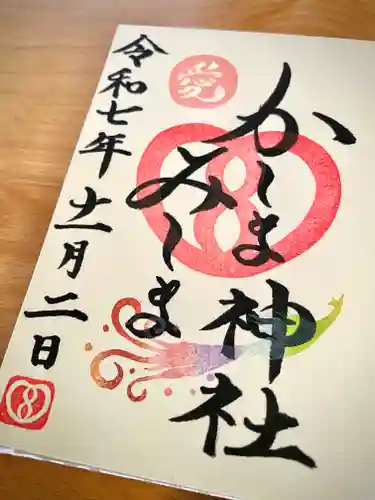 かしま神社
みしま
令和七年十一月二日
愛